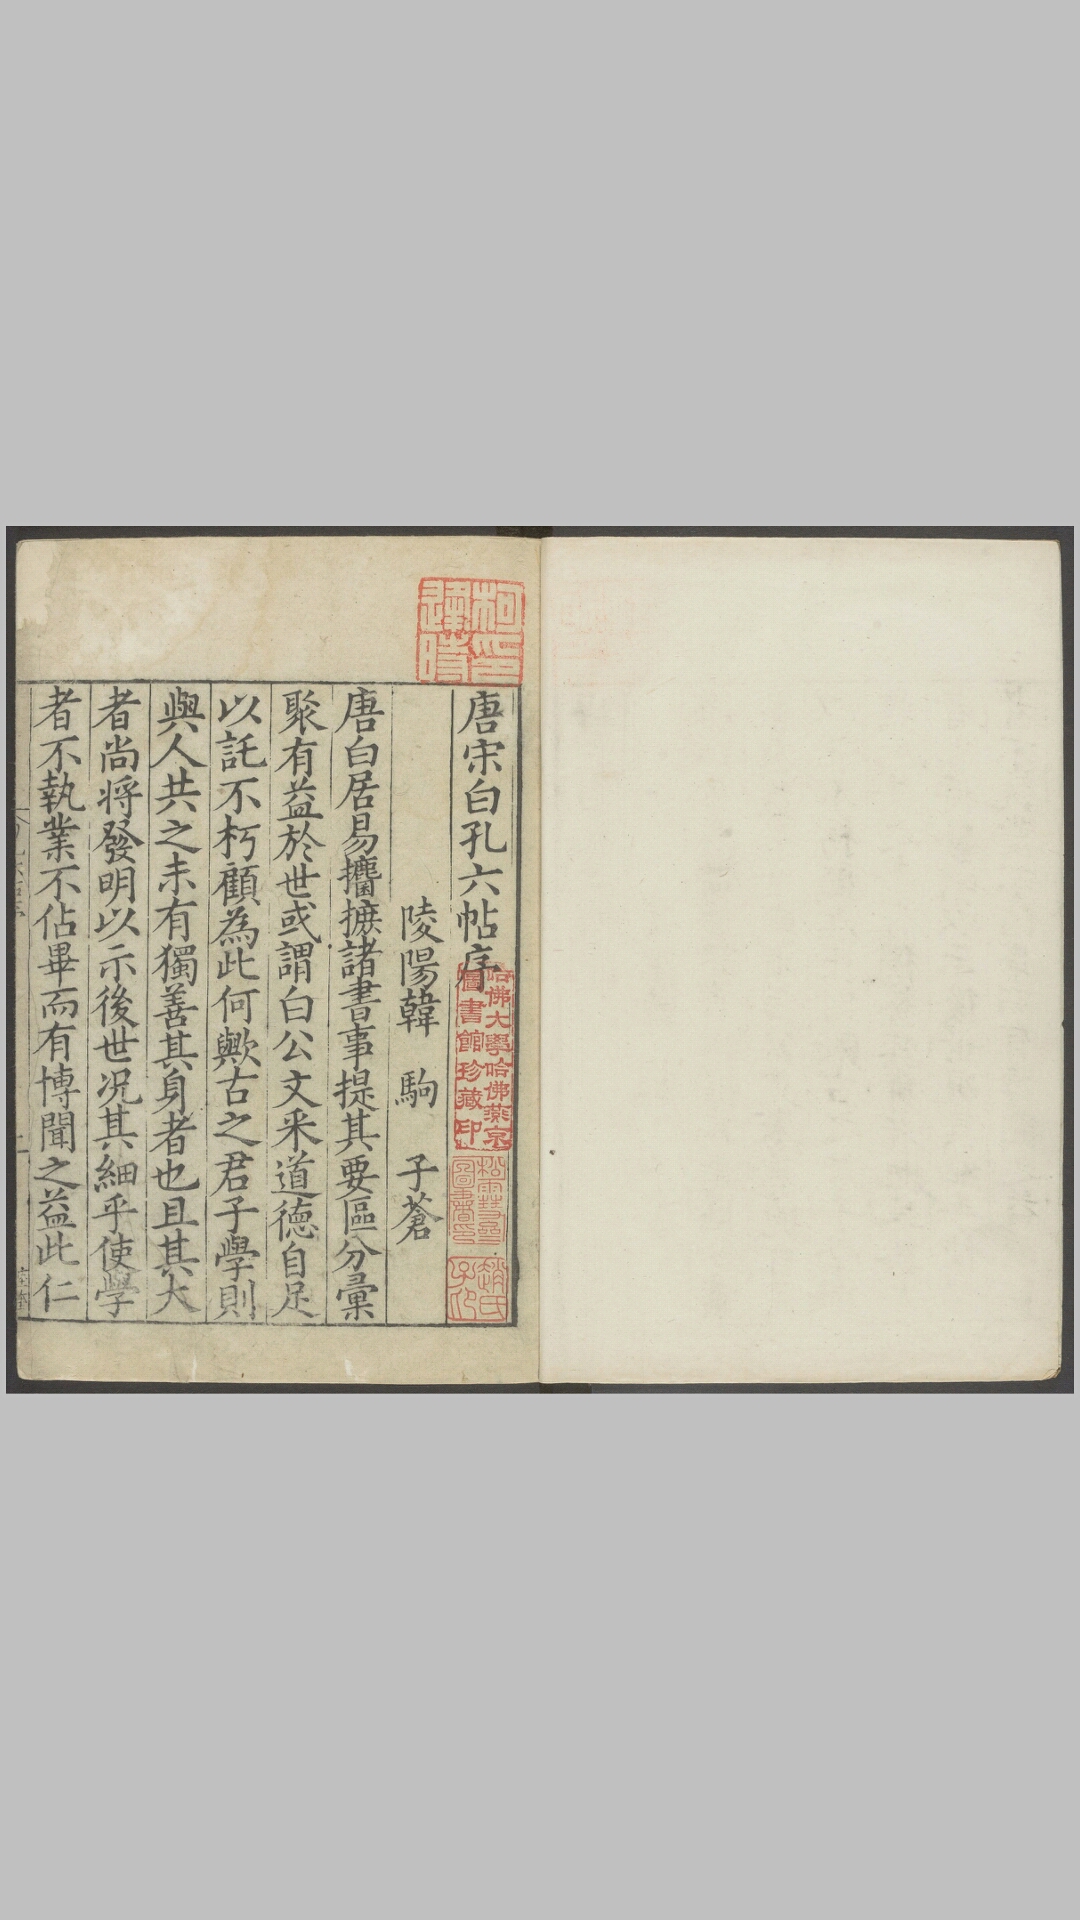 唐宋白孔六帖序
陵陽韓 駒 子蒼
唐白居易攟摭諸書事提其要區分彙
聚有益於世或謂白公文釆道德自足
以託不朽顧為此何歟古之君子學則
與人共之未有獨善其身者也且其大
者尚将發明以示後世况其細乎使學
者不執業不佔畢而有博聞之益此仁
柯逢時印
哈佛大學哈佛燕京圖書館珍藏印
趙氏子昂